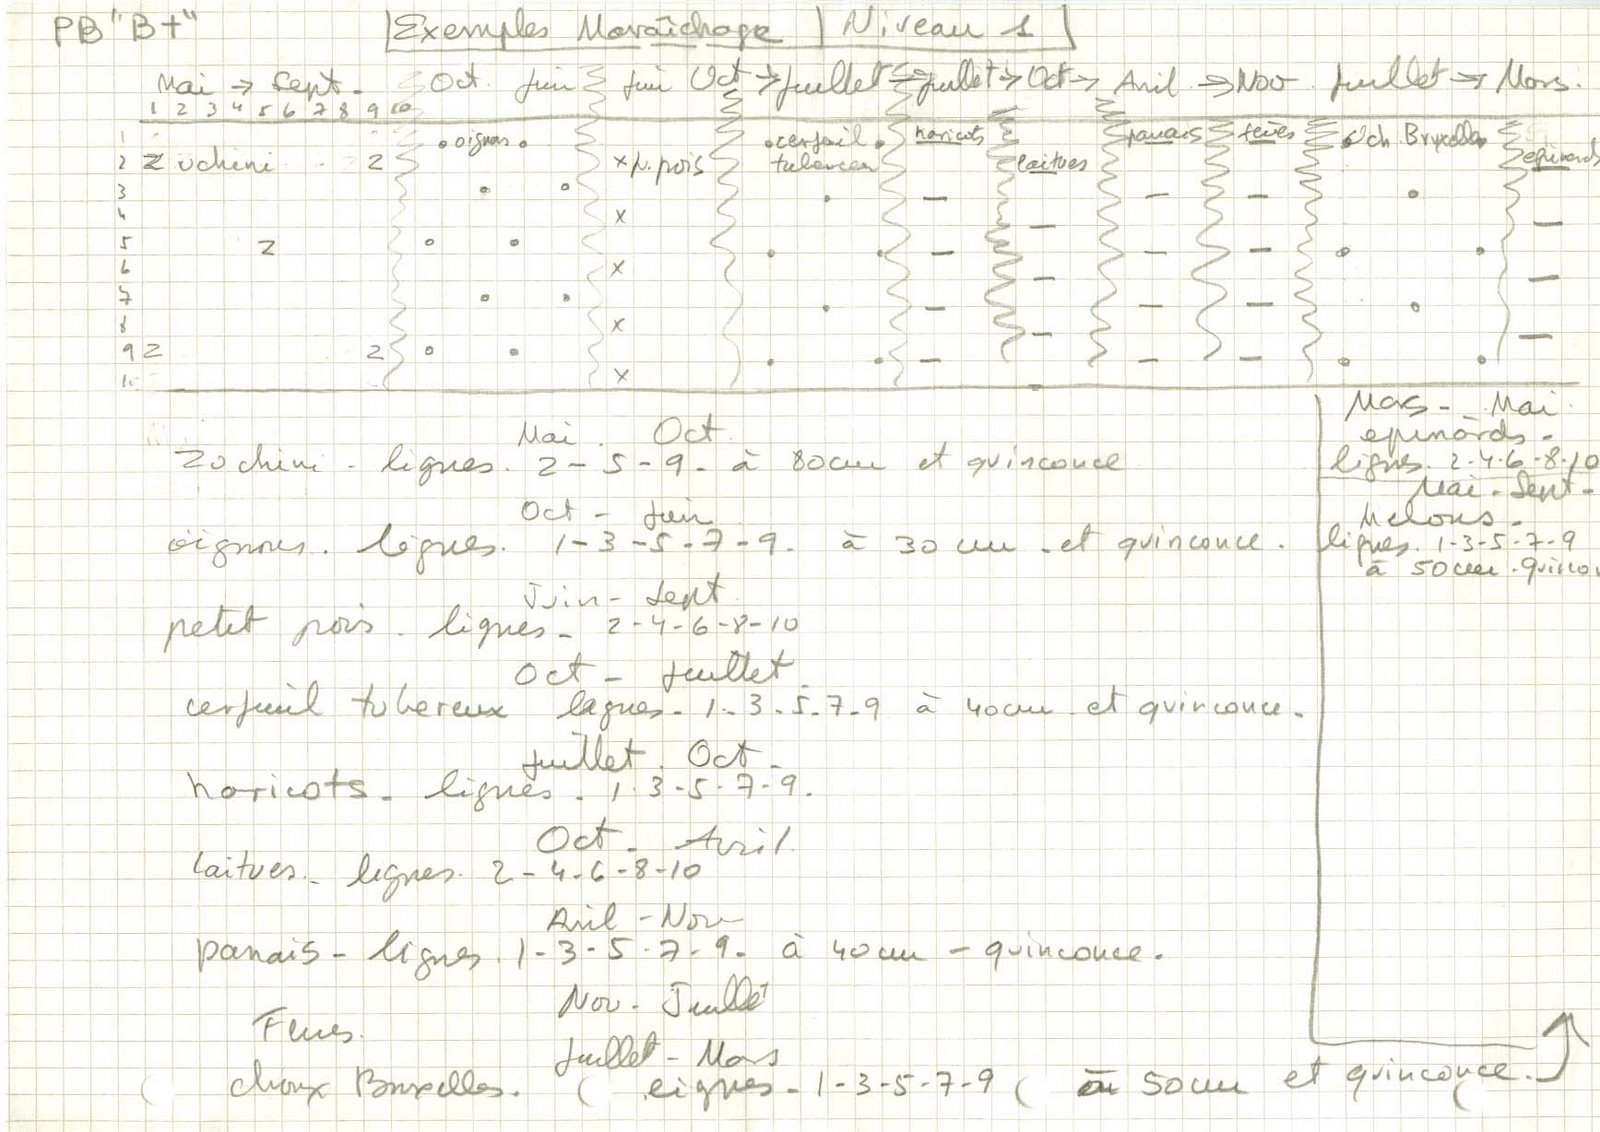 PB "B+" Exemples Maraîchage Niveau 1
Mai → Sept. Oct. Juin Juin Oct → Juillet → Juillet → Oct → Avril → Nov Juillet → Mars.
1 2 3 4 5 6 7 8 9 10
1 oignons cerfeuil haricots panais fèves ch. Bruxelles
2 Zuchini Z x p. pois tubereux laitues epinards
3
4 x
5 Z
6 x
7
8 x
9 Z Z
10 x
Mai . Oct
Zochini - lignes. 2 - 5 - 9 - à 80cm et quinconce
Oct - Juin
oignons. lignes. 1-3-5-7-9. à 30 cm - et quinconce.
Juin - Sept
petit pois. lignes - 2-4-6-8-10
Oct - Juillet
cerfeuil tubereux lignes - 1-3-5-7-9 à 40cm et quinconce.
Juillet . Oct -
haricots - lignes. 1-3-5-7-9.
Oct - Avril
Laitues - lignes. 2-4-6-8-10
Avril - Nov
panais - lignes. 1-3-5-7-9 - à 40cm - quinconce.
Nov - Juillet
Feves.
Juillet - Mars
( choux Bruxelles. ( lignes - 1-3-5-7-9 ( à 50cm et quinconce. (
Mars - Mai
epinards -
lignes. 2-4-6-8-10
Mai - Sept -
Melons -
lignes. 1-3-5-7-9
à 50cm - quinco